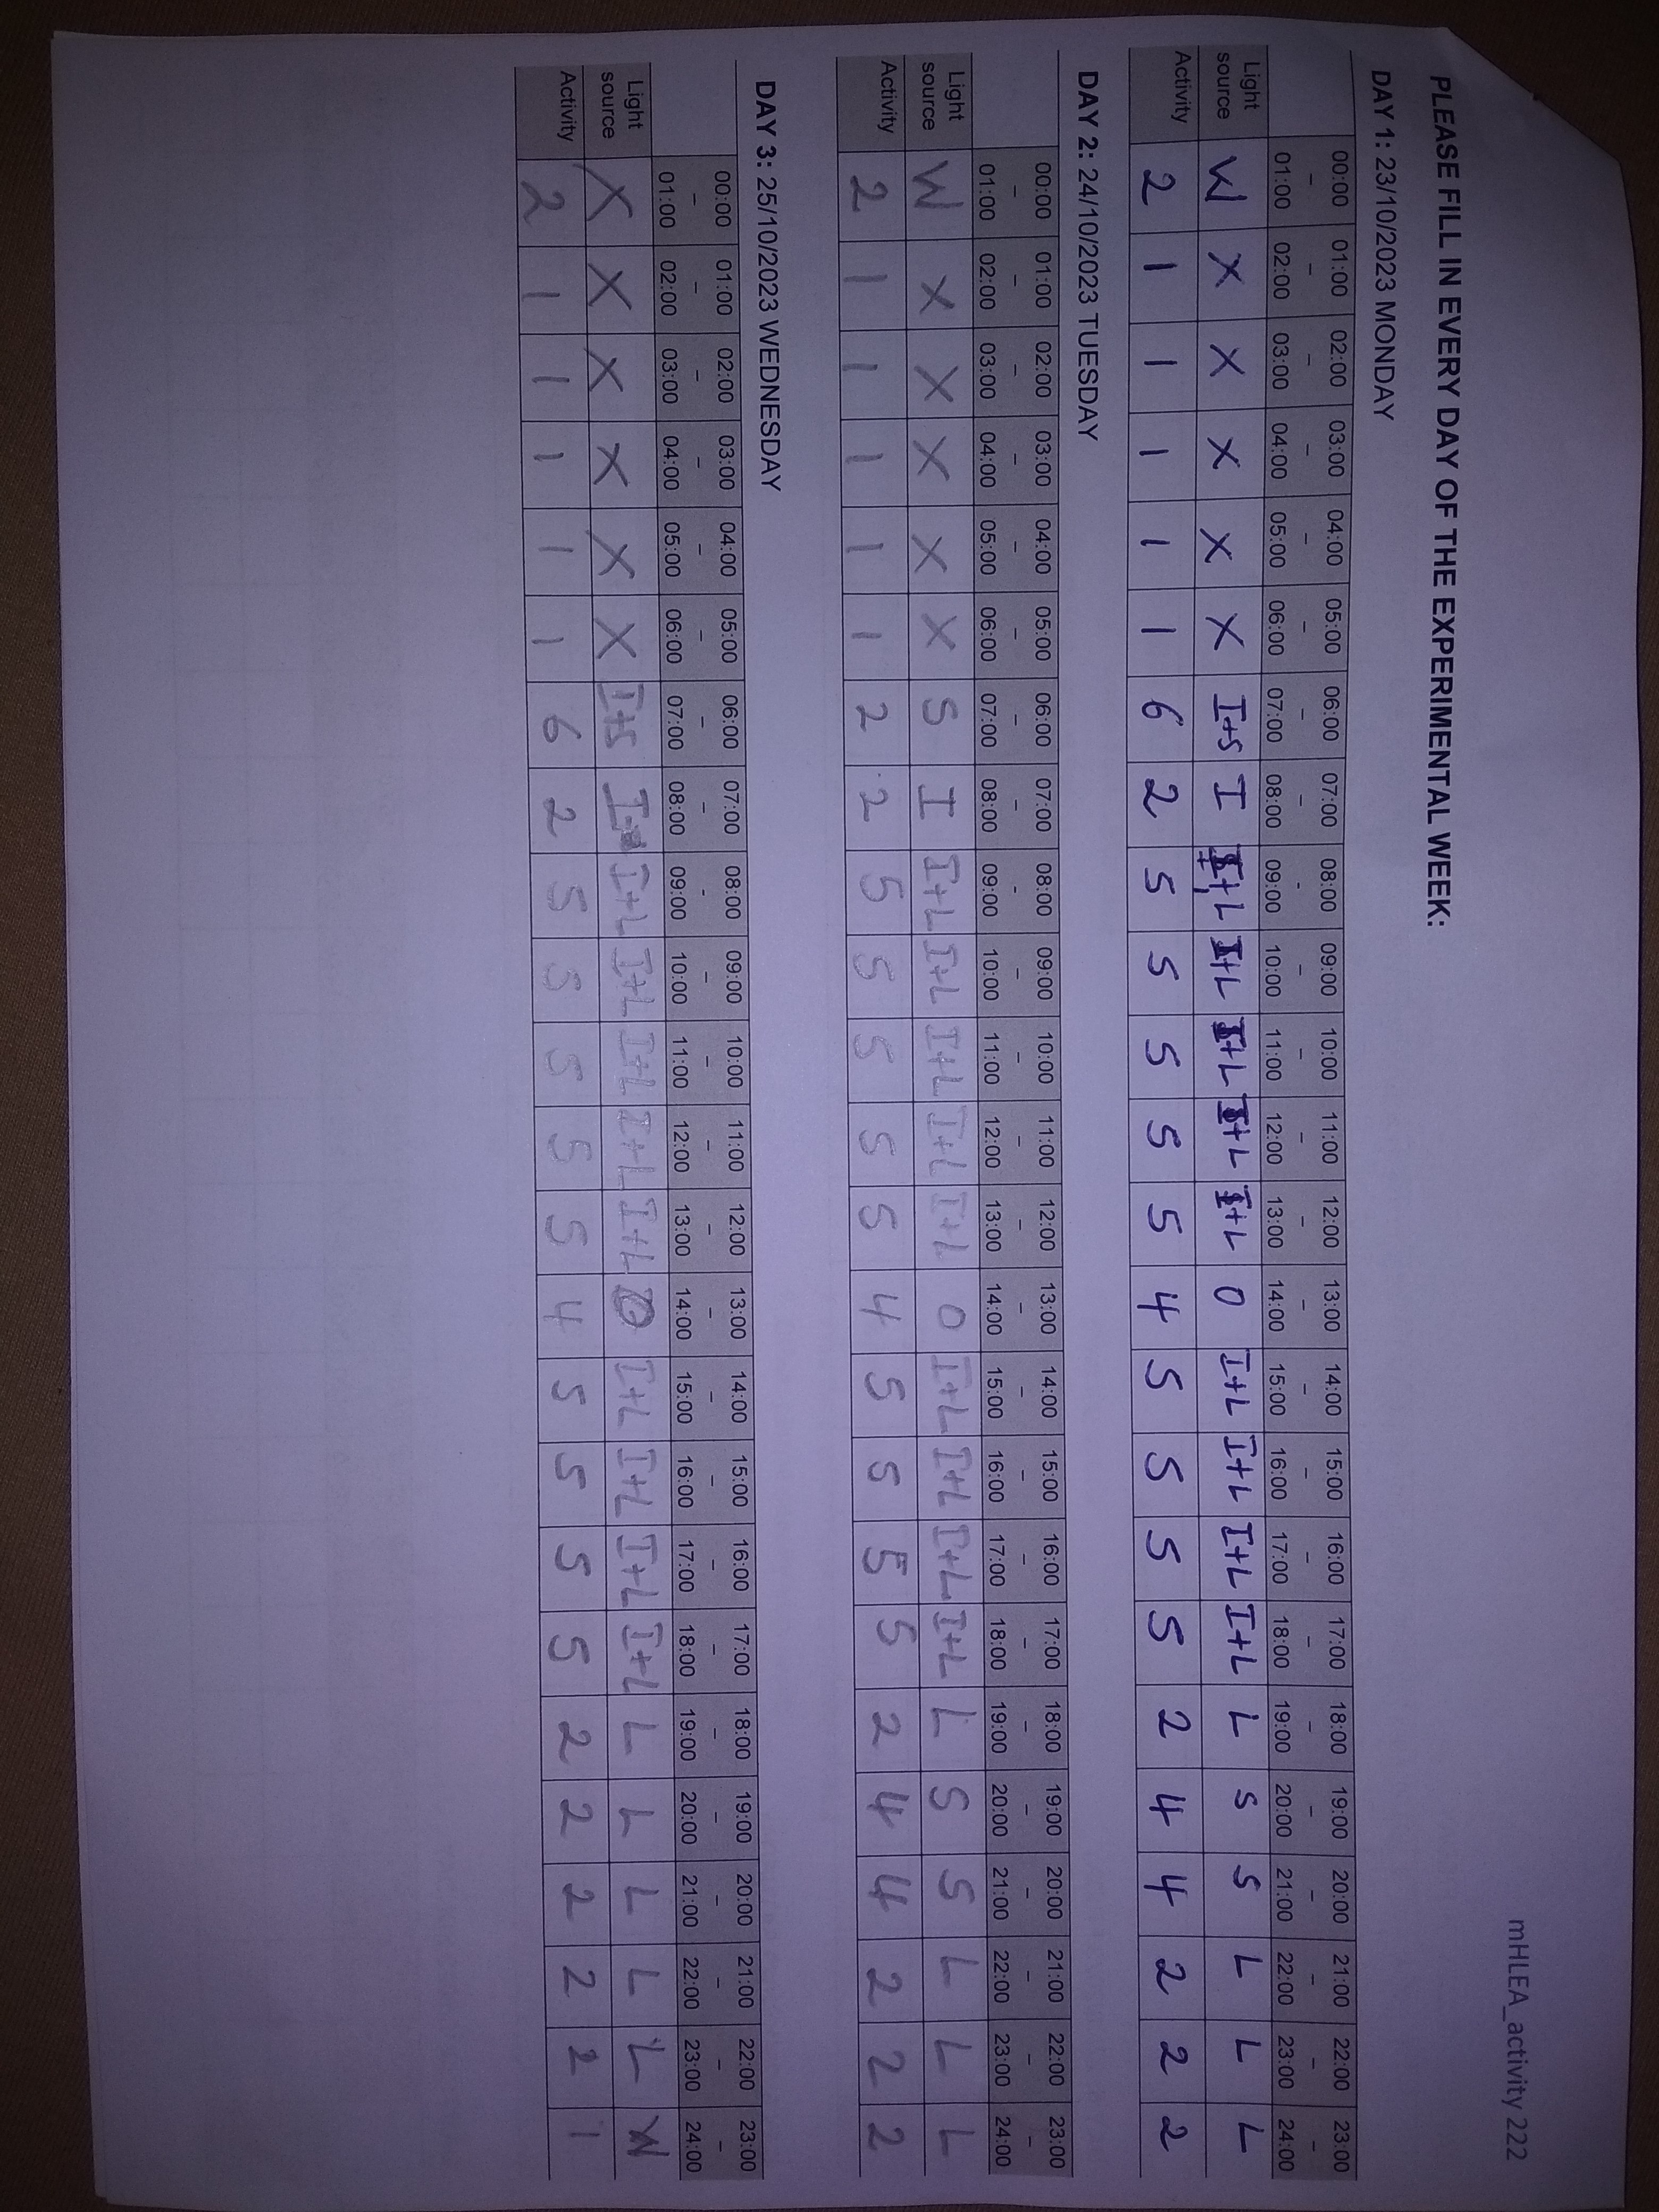 mHLEA_activity 222
PLEASE FILL IN EVERY DAY OF THE EXPERIMENTAL WEEK:
DAY 1: 23/10/2023 MONDAY
00:00 – 01:00 01:00 – 02:00 02:00 – 03:00 03:00 – 04:00 04:00 – 05:00 05:00 – 06:00 06:00 – 07:00 07:00 – 08:00 08:00 – 09:00 09:00 – 10:00 10:00 – 11:00 11:00 – 12:00 12:00 – 13:00 13:00 – 14:00 14:00 – 15:00 15:00 – 16:00 16:00 – 17:00 17:00 – 18:00 18:00 – 19:00 19:00 – 20:00 20:00 – 21:00 21:00 – 22:00 22:00 – 23:00 23:00 – 24:00
Light source W X X X X X I+S I I+L I+L I+L I+L I+L O I+L I+L I+L I+L L S S L L L
Activity 2 1 1 1 1 1 6 2 5 5 5 5 5 4 5 5 5 5 2 4 4 2 2 2
DAY 2: 24/10/2023 TUESDAY
00:00 – 01:00 01:00 – 02:00 02:00 – 03:00 03:00 – 04:00 04:00 – 05:00 05:00 – 06:00 06:00 – 07:00 07:00 – 08:00 08:00 – 09:00 09:00 – 10:00 10:00 – 11:00 11:00 – 12:00 12:00 – 13:00 13:00 – 14:00 14:00 – 15:00 15:00 – 16:00 16:00 – 17:00 17:00 – 18:00 18:00 – 19:00 19:00 – 20:00 20:00 – 21:00 21:00 – 22:00 22:00 – 23:00 23:00 – 24:00
Light source W X X X X X S I I+L I+L I+L I+L I+L O I+L I+L I+L I+L L S S L L L
Activity 2 1 1 1 1 1 2 2 5 5 5 5 5 4 5 5 5 5 2 4 4 2 2 2
DAY 3: 25/10/2023 WEDNESDAY
00:00 – 01:00 01:00 – 02:00 02:00 – 03:00 03:00 – 04:00 04:00 – 05:00 05:00 – 06:00 06:00 – 07:00 07:00 – 08:00 08:00 – 09:00 09:00 – 10:00 10:00 – 11:00 11:00 – 12:00 12:00 – 13:00 13:00 – 14:00 14:00 – 15:00 15:00 – 16:00 16:00 – 17:00 17:00 – 18:00 18:00 – 19:00 19:00 – 20:00 20:00 – 21:00 21:00 – 22:00 22:00 – 23:00 23:00 – 24:00
Light source X X X X X X I+S I I+L I+L I+L I+L I+L O I+L I+L I+L I+L L L L L L W
Activity 2 1 1 1 1 1 6 2 5 5 5 5 5 4 5 5 5 5 2 2 2 2 2 1